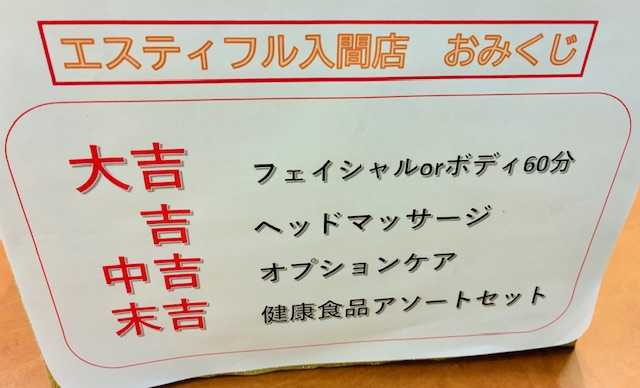 エスティフル入間店 おみくじ
大吉 フェイシャルorボディ60分
吉 ヘッドマッサージ
中吉 オプションケア
末吉 健康食品アソートセット